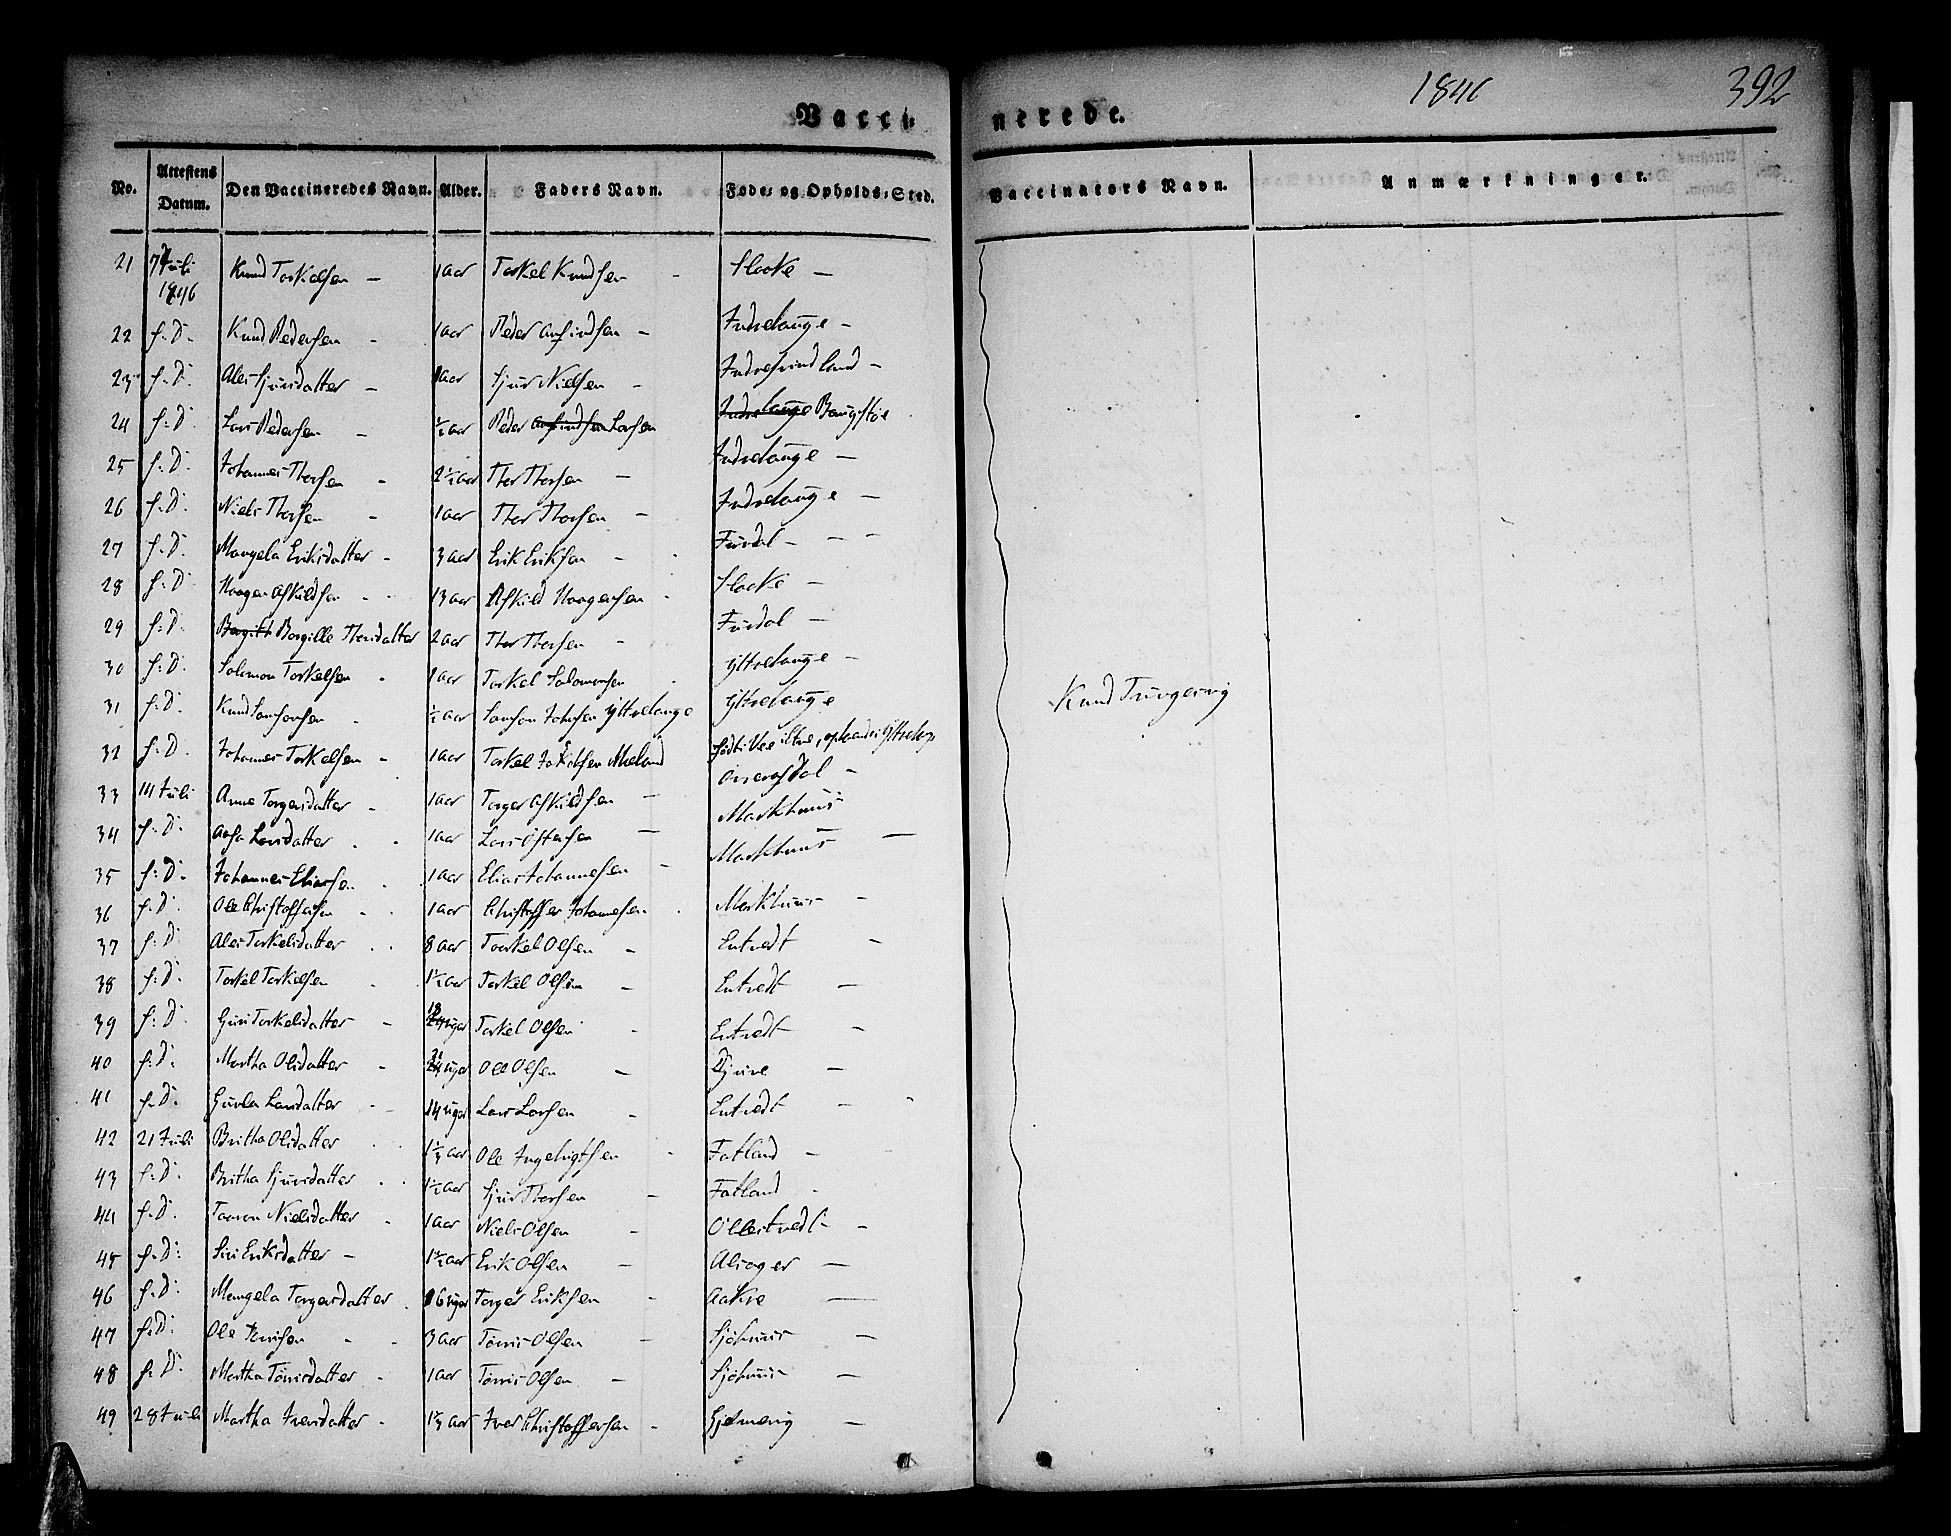 1846
392
Vacci-
nerede.
No. Attestens Datum. Den Vaccineredes Navn. Alder. Faders Navn. Føde- og Opholds-Sted. Vaccinators Navn. Anmærkninger.
21 7 Juli 1846 Knud Torkelsen – 1 aar Torkel Knudsen - –
22 f: D: Knud Pedersen - 1 aar Peder –
23 f: D: Sjursdatter – 1 aar Sjur Nielsen – –
24 f: D: Lars Pedersen – ½ aar Peder Larsen
25 f: D: Johannes Thorsen - 2½ aar Thor Thorsen – –
26 f: D: Niels Thorsen - 1 aar Thor Thorsen – –
27 f: D: Mangela Eriksdatter - 3 aar Erik Eriksen – – –
28 f: D: Haagen Askildsen - 13 aar Askild Haagensen - –
29 f: D: Thorsdatter 2 aar Thor Thorsen – –
30 f: D: Salomon Torkelsen - 1 aar Torkel Salomonsen Yttrelange –
31 f: D: Knud Samsonsen - ½ aar Samson Johnsen Yttrelange Yttrelange
32 f: D: Johannes Torkelsen - 1 aar Torkel
33 14 Juli Anne Torgersdatter - 1 aar Torger Askildsen – –
34 f: D: Larsdatter 1 aar Lars – Markhuus
35 f: D: Johannes Eliassen - 1 aar Elias Johannesen – Markhuus –
36 f: D: Ole Christoffersen - 1 aar Christoffer Johannesen - Markhuus –
37 f: D: Torkelsdatter 8 aar Torkel Olsen – Entvedt –
38 f: D: Torkel Torkelsen - 1½ aar Torkel Olsen – Entvedt –
39 f: D: Guri Torkelsdatter – uger Torkel Olsen - Entvedt –
40 f: D: Martha Olsdatter – uger Ole Olsen – Djuve –
41 f: D: Larsdatter - 14 uger Lars Larsen – Entvedt –
42 21 Juli Britha Olsdatter 1⅓ aar Ole - Fatland –
43 f: D: Britha Sjursdatter 1½ aar Sjur Thorsen – Fatland -
44 f: D: Nielsdatter - 1 aar Niels Olsen – Ollestvedt –
45 f: D: Siri Eriksdatter – 1½ aar Erik Olsen – –
46 f: D: Mangela Torgersdatter . 16 uger Torger Eriksen - Aakre –
47 f: D: Ole - 3 aar Tørris Olsen – Sjøhuus –
48 f: D: Martha Tørrisdatter - 1 aar Tørris Olsen – Sjøhuus –
49 28 Juli Martha Iversdatter - 1⅓ aar Iver Christoffersen - –
Knud